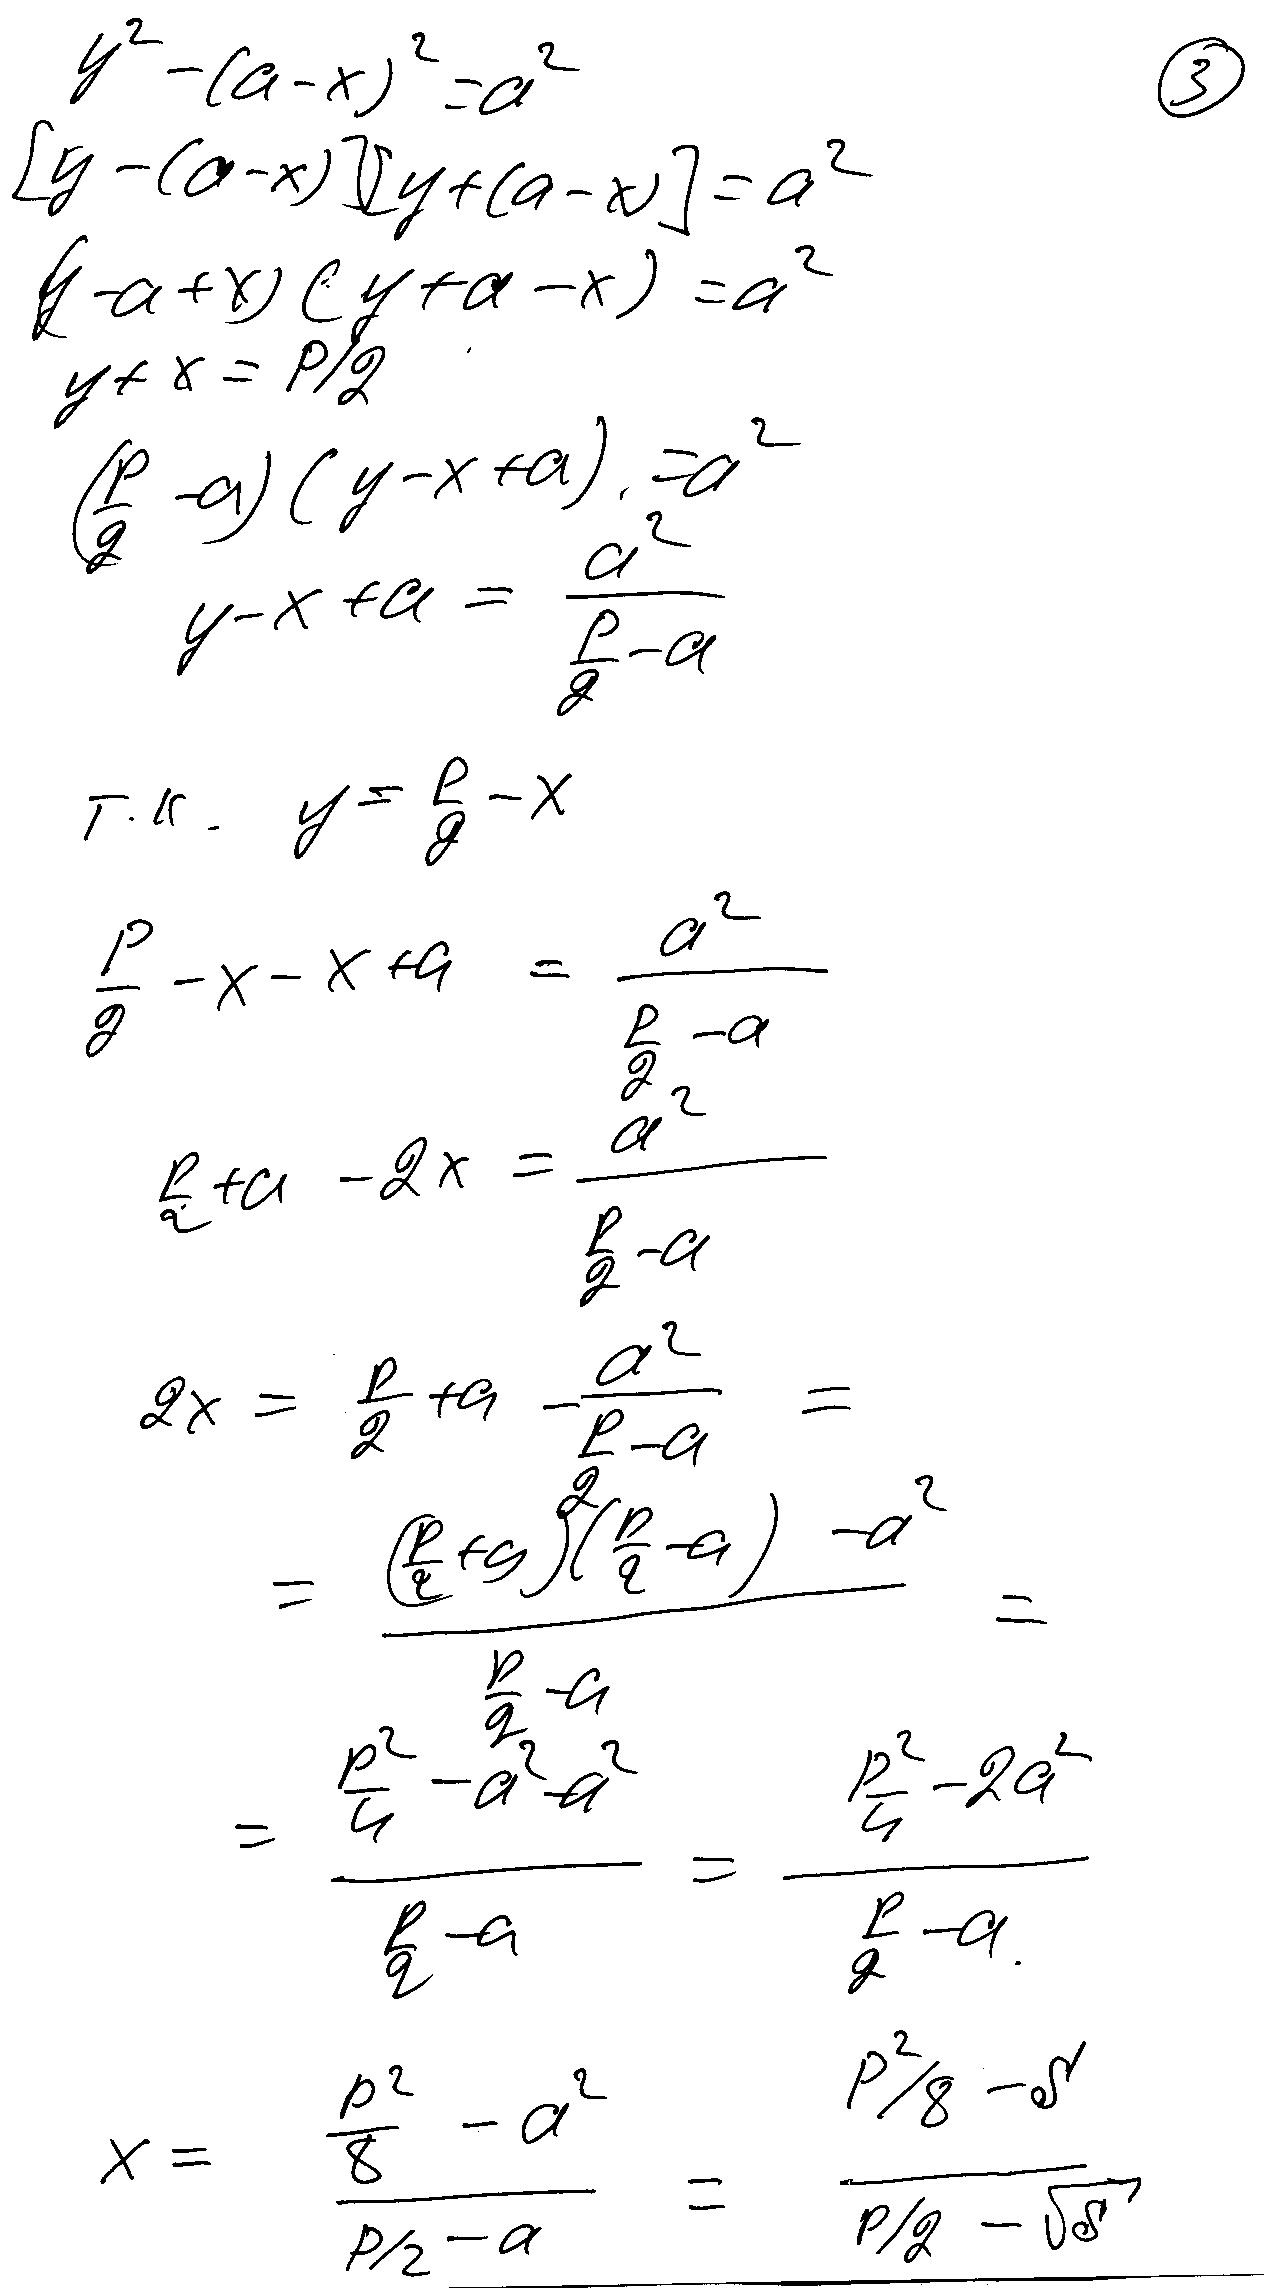 y² - (a - x)² = a²
③
[y - (a - x)][y + (a - x)] = a²
(y - a + x)(y + a - x) = a²
y + x = P/2
(P/2 - a)(y - x + a) = a²
y - x + a = a²/(P/2 - a)
т.к. y = P/2 - x
P/2 - x - x + a = a²/(P/2 - a)
P/2 + a - 2x = a²/(P/2 - a)
2x = P/2 + a - a²/(P/2 - a) =
= ((P/2 + a)(P/2 - a) - a²)/(P/2 - a) =
= (P²/4 - a² - a²)/(P/2 - a) = (P²/4 - 2a²)/(P/2 - a).
x = (P²/8 - a²)/(P/2 - a) = (P²/8 - S)/(P/2 - √S)